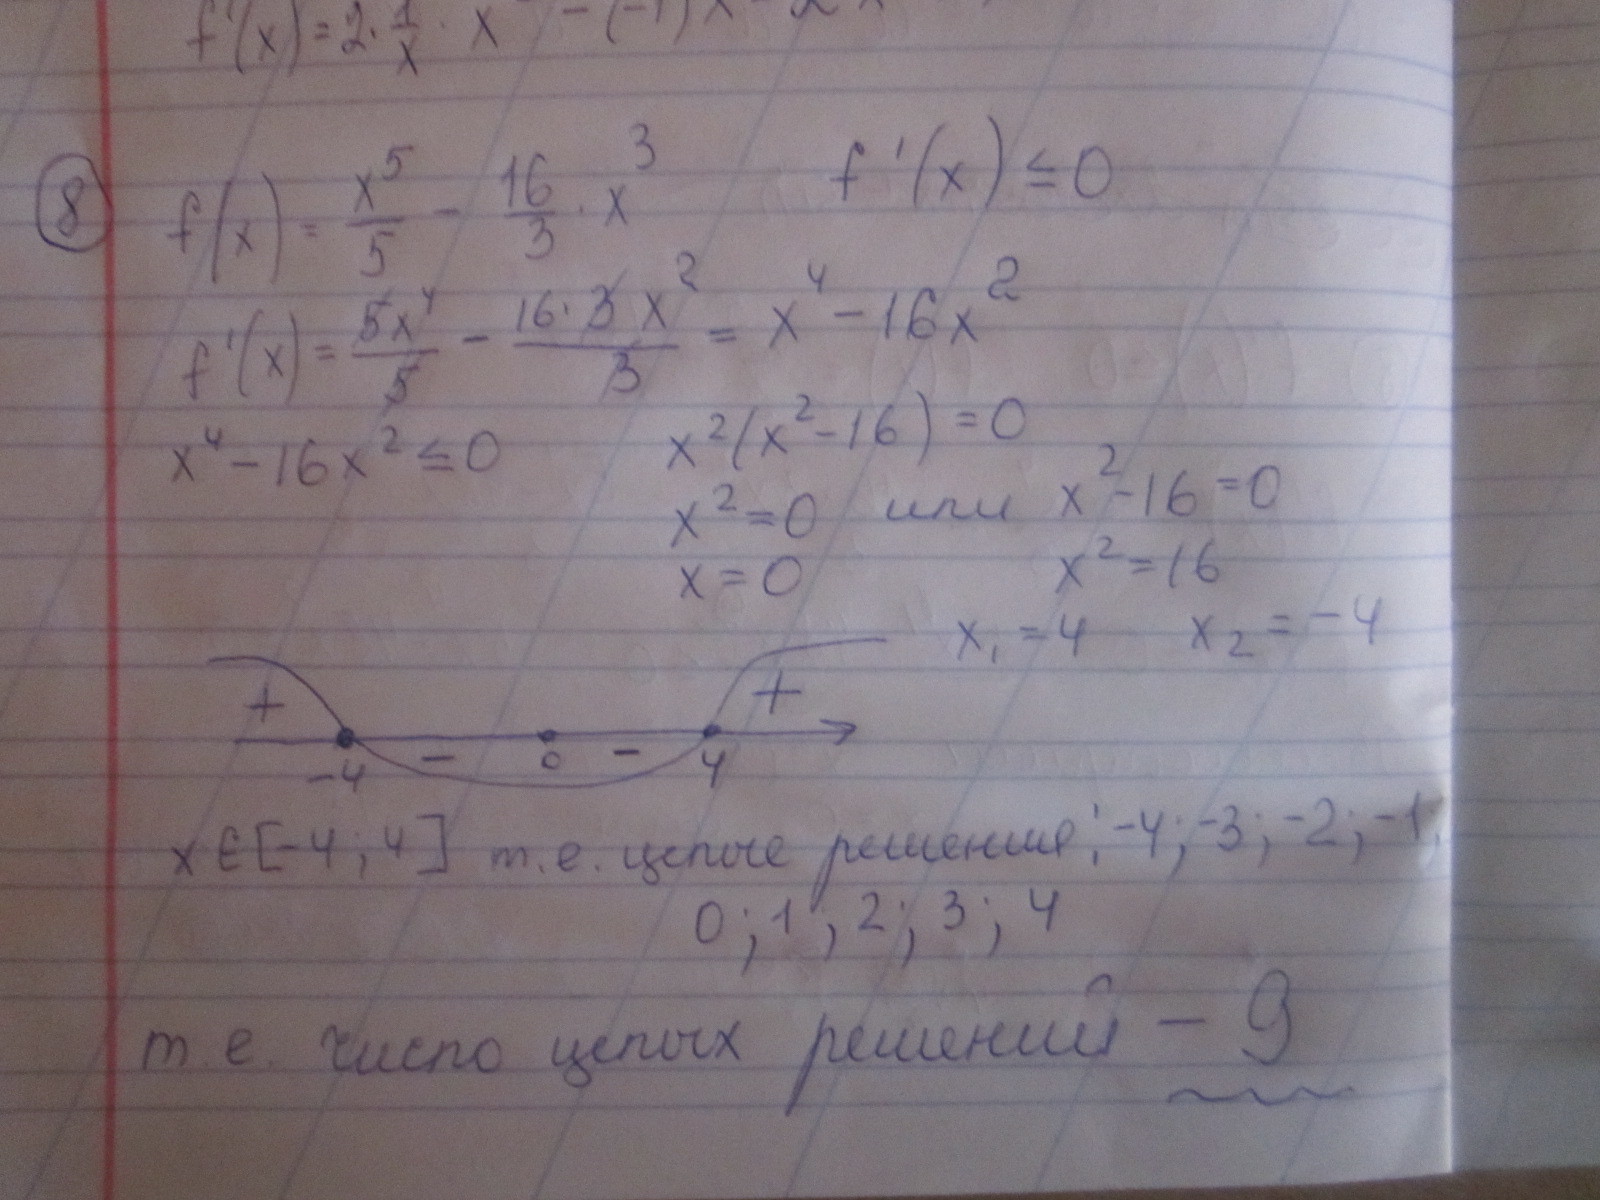 f'(x) = 2 · 1/x · x
⑧ f(x) = x⁵/5 - 16/3 · x³    f'(x) ≤ 0
f'(x) = 5x⁴/5 - 16·3x²/3 = x⁴ - 16x²
x⁴ - 16x² ≤ 0    x²(x² - 16) = 0
x² = 0 или x² - 16 = 0
x = 0    x² = 16
x₁ = 4    x₂ = -4
+ - - +
-4 0 4
x ∈ [-4; 4] т.е. целые решения: -4; -3; -2; -1;
0; 1; 2; 3; 4
т.е. число целых решений - 9